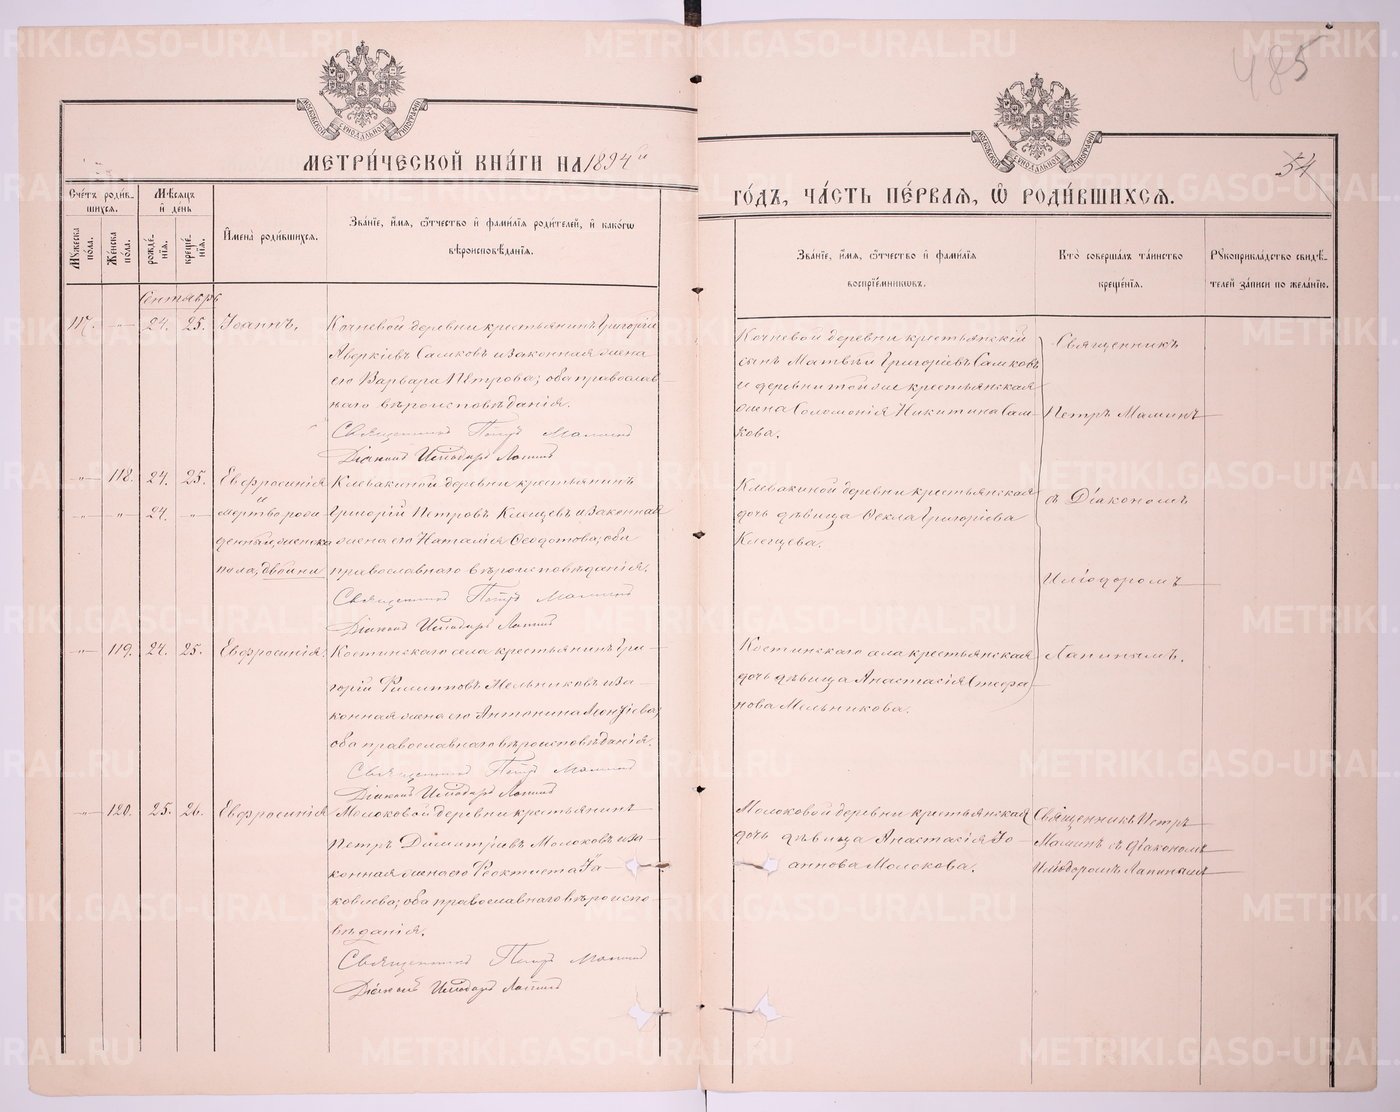 485
54
МОСКОВСКОЙ СѴНОДАЛЬНОЙ ТИПОГРАФІИ
МЕТРИ́ЧЕСКОЙ КНИ́ГИ НА 1894й
МОСКОВСКОЙ СѴНОДАЛЬНОЙ ТИПОГРАФІИ
ГО́ДЪ, ЧА́СТЬ ПЕ́РВАЯ, Ѡ҆ РОДИ́ВШИХСЯ.
Сче́тъ роди́в-
шихся.
Мѣ́сяцъ
и҆ де́нь
Му́жеска по́ла.
Же́нска по́ла.
рожде́-
нїя.
креще́-
нїя.
И҆мена̀ роди́вшихся.
Зва́нїе, и҆́мя, ѻ҆́тчество и҆ фами́лїя роди́телей, и҆ како́гѡ
вѣроисповѣ́данїя.
Зва́нїе, и҆́мя, ѻ҆́тчество и҆ фами́лїя
воспрїе́мниковъ.
Кто̀ соверша́лъ та́инство
креще́нїя.
Рꙋкоприкла́дство свидѣ́-
телей за́писи по жела́нїю.
Сентябрь
117. -"- 24. 25. Іоаннъ,
Кочневой деревни крестьянинъ Григорій
Аверкіевъ Самковъ и законная жена
его Варвара Петрова; оба православ-
наго вѣроисповѣданія.
Священникъ Петръ Маминъ
Діаконъ Иліодоръ Лапинъ
Кочневой деревни крестьянскій
сынъ Матвѣй Григоріевъ Самковъ
и деревни той же крестьянская
жена Соломонія Никитина Сам-
кова.
Священникъ
Петръ Маминъ
-"- 118. 24. 25. Евфросинія
и
-"- -"- 24. -"- мертво рож-
денный, женска
пола, двойни
Клевакиной деревни крестьянинъ
Григорій Петровъ Клещевъ и законная
жена его Наталія Ѳеодотова; оба
православнаго вѣроисповѣданія.
Священникъ Петръ Маминъ
Діаконъ Иліодоръ Лапинъ
Клевакиной деревни крестьянская
дочь дѣвица Ѳекла Григоріева
Клещева.
съ Діакономъ
Иліодоромъ
-"- 119. 24. 25. Евфросинія,
Костинскаго села крестьянинъ Гри-
горій Филипповъ Мельниковъ и за-
конная жена его Антонина Леонтіева;
оба православнаго вѣроисповѣданія.
Священникъ Петръ Маминъ
Діаконъ Иліодоръ Лапинъ
Костинскаго села крестьянская
дочь дѣвица Анастасія Стефа-
нова Мельникова.
Лапинымъ.
-"- 120. 25. 26. Евфросинія
Молоковой деревни крестьянинъ
Петръ Димитріевъ Молоковъ и за-
конная жена его Феоктиста Іа-
ковлева; оба православнаго вѣроиспо-
вѣданія.
Священникъ Петръ Маминъ
Діаконъ Иліодоръ Лапинъ
Молоковой деревни крестьянская
дочь дѣвица Анастасія Іо-
аннова Молокова.
Священникъ Петръ
Маминъ съ діакономъ
Иліодоромъ Лапинымъ
METRIKI.GASO-URAL.RU